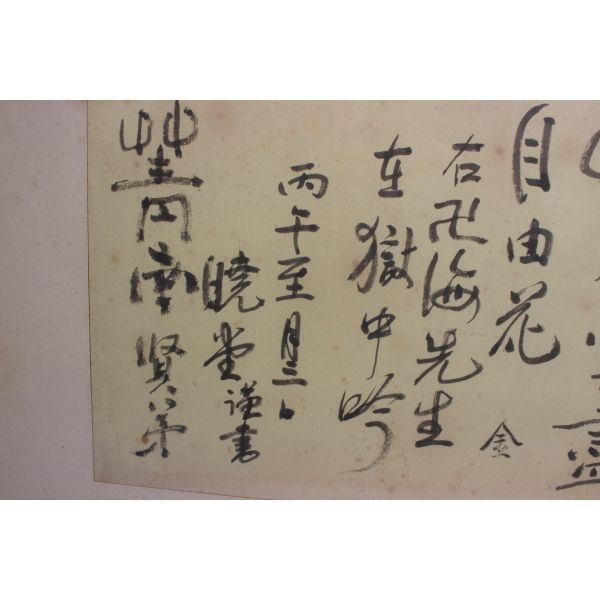 自由花
金
右卍海先生
在獄中吟
丙午至月三日
曉堂謹書
菁南賢弟